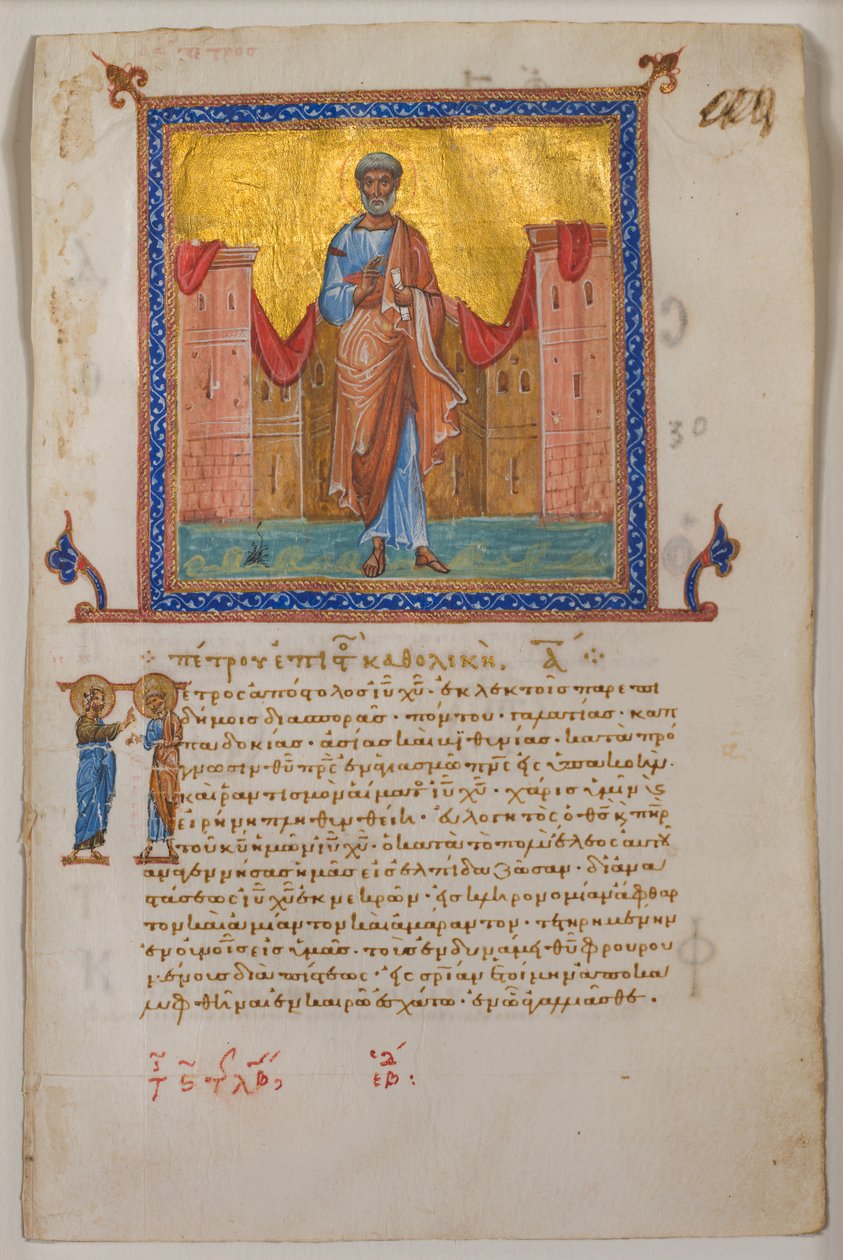 πέτρου ἐπιστο καθολικὴ. Α
Πέτρος ἀπόστολος ιυ χυ· ἐκλεκτοῖς παρεπι
δήμοις διασπορᾶς· πόντου· γαλατίας· καπ
παδοκίας· ἀσίας καὶ βιθυνίας· κατὰ πρό
γνωσιν θυ πρς ἐν ἁγιασμῶ πνς εἰς ὑπακοὴν·
καὶ ῥαντισμὸν αἵματος ιυ χυ· χάρις ὑμῖν ϗ
εἰρήνη πληθυνθείη· εὐλογητὸς ὁ θς ϗ πηρ
τοῦ κυ ἡμῶν ιυ χυ· ὁ κατὰ τὸ πολὺ ἔλεος αὐτοῦ
ἀναγεννήσας ἡμᾶς εἰς ἐλπίδα ζῶσαν· δι᾽ ἀνα
στάσεως ιυ χυ ἐκ νεκρῶν· εἰς κληρονομίαν ἄφθαρ
τον καὶ ἀμίαντον καὶ ἀμάραντον· τετηρημένην
ἐν οὐνοῖς εἰς ὑμᾶς· τοὺς ἐν δυνάμει θυ φρουρου
μένους διὰ πίστεως· εἰς σρίαν ἑτοίμην ἀποκα
λυφθῆναι ἐν καιρῶ ἐσχάτω· ἐν ὧ ἀγαλλιᾶσθε.
30